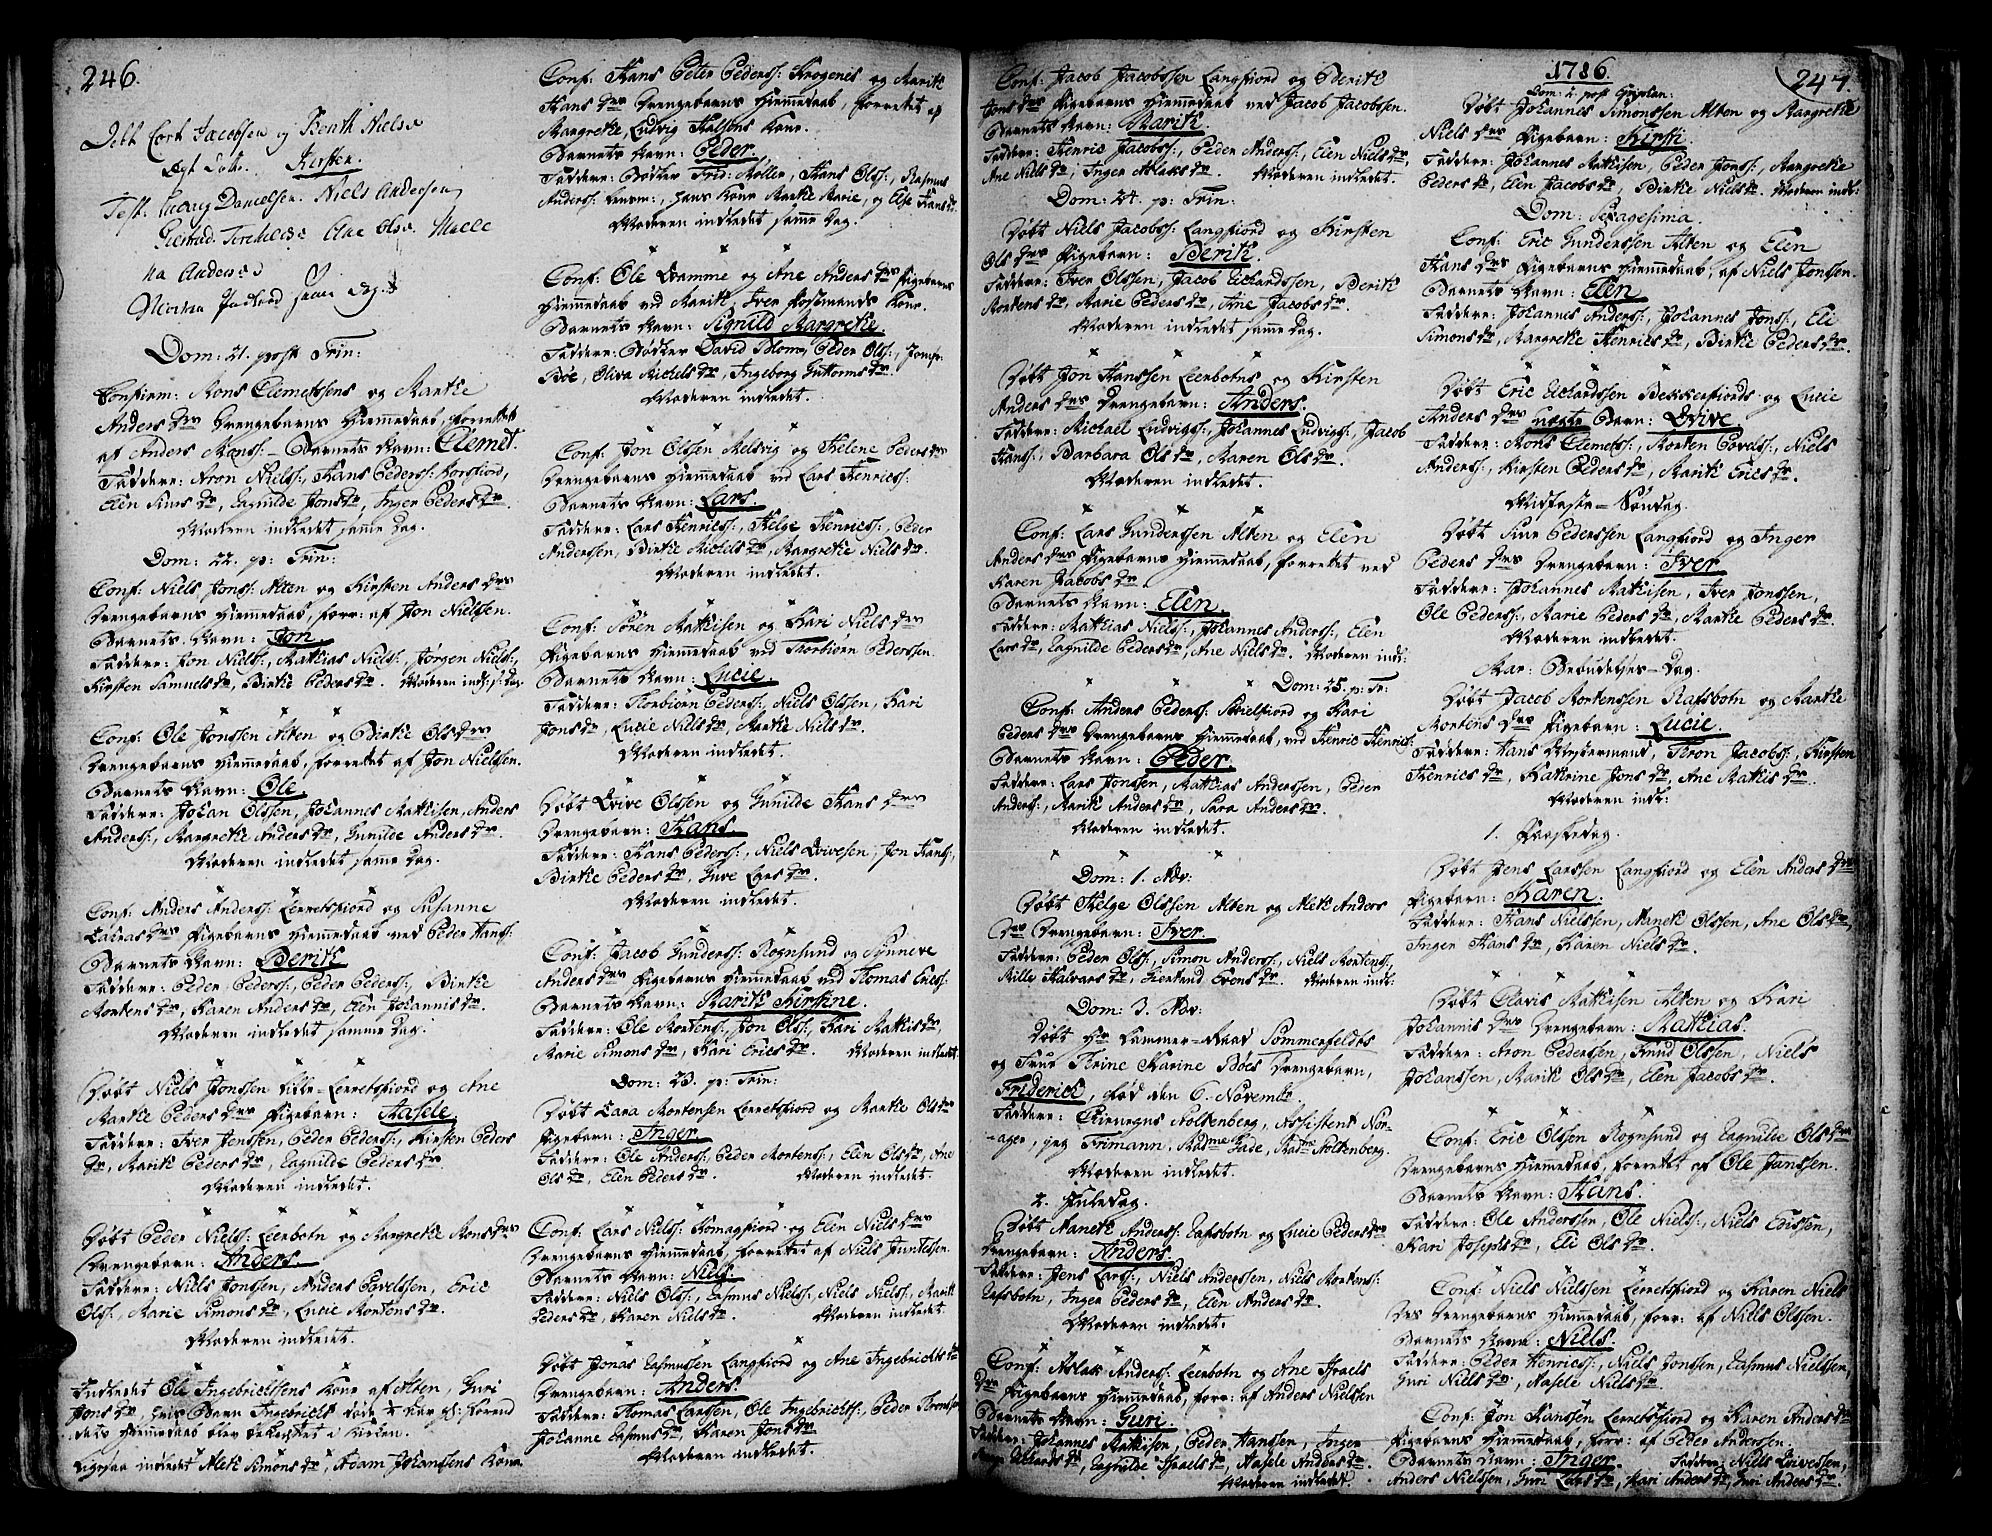 246.
Døbt Cort Jacobsen og Berith Niels
Kirsten.
Test. Ludvig Danielsen. Niels Andersen
Dom: 21. post Trin:
Confirm: Mons Clemetssens og Marthe
Anders Drs Drengebarns Hiemmedaab, forrettet
af Anders Monss: - Barnets Navn: Clemet.
Faddere: Aron Nielss:, Hans Pederss: Korsfiord,
Elen Siurs Dr, Ragnilde Jons Dr, Inger Peders Dr.
Moderen indledet samme Dag.
Dom: 22. p: Trin:
Conf: Niels Jonss: Alten og Kirsten Anders Drs
Drengebarns Hiemmedaab, forr: af Jon Nielssen.
Barnets Navn: Jon
Faddere: Jon Nielss:, Mathias Nielss:, Jørgen Nielss:,
Kirsten Samuels Dr, Birthe Peders Dr. Moderen indl: s: Dag.
Conf: Ole Jonssen Alten og Birthe Ols Drs
Drengebarns Hiemmedaab, forrettet af Jon Nielssen.
Barnets Navn: Ole.
Faddere: Johan Olssen, Johannes Mathisen, Anders
Anderss:, Margrethe Anders Dr, Gunilde Anders Dr.
Moderen indledet samme Dag.
Conf: Anders Anderss: Lerretsfiord og Susanne
Zakras Drs Pigebarns Hiemmedaab ved Peder Hanss:
Barnets Navn: Berith
Faddere: Peder Pederss:, Peder Pederss:, Birthe
Mortens Dr, Karen Anders Dr, Elen Johannis Dr.
Moderen indledet samme Dag.
Døbt Niels Jonssen Lille-Lerretsfiord og Ane
Marthe Peders Drs Pigebarn: Aasele.
Faddere: Iver Jenssen, Peder Pederss:, Kirsten Peders
Dr, Marith Peders Dr, Ragnilde Peders Dr.
Moderen indledet.
Døbt Peder Nielss: Leerbotn og Margrethe Mons Drs
Drengebarn: Anders.
Faddere: Niels Jonssen, Anders Povelssen, Eric
Olss:, Marie Simons Dr, Lucie Mortens Dr.
Moderen indledet.
Indledet Ole Ingebrictssens Kone af Alten, Guri
Jons Dr, hvis Barn Ingebrict døde
dets Hiemmedaab blev bekræftet i Kirken.
Ligesaa indledet Aleth Simons Dr, Adam Johanssens Kone
Conf: Hans Peter Pederss: Krogenes og Marith
Hans Drs Drengebarns Hiemmedaab, forrettet af
Margrethe, Ludvig Halsens Kone.
Barnets Navn: Peder.
Faddere: Bødker Frid: Møller, Hans Olss:, Rasmus
Anderss:, hans Kone Marthe Marie, og Else Hans Dr.
Moderen indledet samme Dag.
Conf: Ole Qvamme og Ane Anders Drs Pigebarns
Hiemmedaab ved Marith, Iver Postmands Kone.
Barnets Navn: Signild Margrethe.
Faddere: Bødker David Blom, Peder Olss:, Jomfr:
Bøe, Oliva Michels Dr, Ingeborg Guttorms Dr.
Moderen indledet.
Conf: Jon Olssen Melsvig og Helene Peders Drs
Drengebarns Hiemmedaab ved Lars Henricss:
Barnets Navn: Lars.
Faddere: Lars Henricss:, Helge Henricss:, Peder
Anderssen, Birthe Michels Dr, Margrethe Niels Dr.
Moderen indledet.
Conf: Søren Mathisen og Kari Niels Drs
Pigebarns Hiemmedaab ved Thorbiørn Pederssen.
Barnets Navn: Lucie.
Faddere: Thorbiørn Pederss:, Niels Olssen, Kari
Jons Dr, Lucie Niels Dr, Marthe Niels Dr.
Moderen indledet.
Døbt Qvive Olssen og Gunilde Hans Drs
Drengebarn: Hans.
Faddere: Hans Pederss:, Niels Qvivesen, Jon Hanss:,
Birthe Peders Dr, Lars Dr.
Moderen indledet.
Conf: Jacob Gunderss: Rognsund og Synneve
Anders Drs Pigebarns Hiemmedaab ved Thomas Ericss:
Barnets Navn: Marith Kirstine.
Faddere: Ole Mortenss:, Jon Olss:, Kari Mathis Dr,
Marie Simons Dr, Kari Erics Dr. Moderen indledet.
Dom: 23. p: Trin:
Døbt Lars Mortensen Lerretsfiord og Marthe Ols Drs
Pigebarn: Inger.
Faddere: Ole Anderss:, Peder Mortenss:, Elen Ols Dr, Ane
Ols Dr, Elen Peders Dr. Moderen indledet.
Conf: Lars Nielss: Komagfiord og Elen Niels Drs
Drengebarns Hiemmedaab, forrettet af Niels
Barnets Navn: Niels.
Faddere: Niels Olss:, Rasmus Nielss:, Niels Nielss:, Marith
Peders Dr, Karen Niels Dr. Moderen indledet
Døbt Jonas Rasmussen Langfiord og Ane Ingebricts Drs
Drengebarn: Anders.
Faddere: Thomas Larssen, Ole Ingebrictss:, Peder
Johanne Rasmus Dr, Karen Jons Dr
Moderen indledet.
Conf: Jacob Jacobssen Langfiord og Berith
Jons Drs Pigebarns Hiemmedaab ved Jacob Jacobssen.
Barnets Navn: Marith.
Faddere: Henric Jacobss:, Peder Anderss:, Elen Niels Dr,
Ane Niels Dr, Inger Aslaks Dr. Moderen indledet.
Dom: 24. p: Trin:
Døbt Niels Jacobss: Langfiord og Kirsten
Ols Drs Pigebarn: Berith.
Faddere: Iver Olssen, Jacob Richardssen, Berith
Mortens Dr, Marie Peders Dr, Ane Jacobs Dr.
Moderen indledet samme Dag.
Døbt Jon Hanssen Leerbotns og Kirsten
Anders Drs Drengebarn: Anders.
Faddere: Michael Ludvigss:, Johannes Ludvigss:, Jacob
Hanss:, Barbara Ols Dr, Maren Ols Dr.
Moderen indledet.
Conf: Lars Gunderssen Alten og Elen
Anders Drs Pigebarns Hiemmedaab, forrettet ved
Karen Jacobs Dr
Barnets Navn: Elen.
Faddere: Mathias Nielss:, Johannes Anderss:, Elen
Lars Dr, Ragnilde Peders Dr, Ane Niels Dr. Moderen indl:
Dom: 25. p: Tr:
Conf: Anders Pederss: Skielfiord og Kari
Peders Drs Drengebarns Hiemmedaab, ved Henric Henricss:
Barnets Navn: Peder.
Faddere: Lars Jonssen, Mathias Anderssen, Peder
Anderss:, Marith Anders Dr, Sara Anders Dr.
Moderen indledet.
Dom: 1. Adv:
Døbt Helge Olssen Alten og Aleth Anders
Drs Drengebarn: Iver.
Faddere: Peder Olss:, Simon Anderss:, Niels Mortenss:
Mille Halvars Dr, Giertrud Evens Dr. Moderen indl:
Dom: 3. Adv:
Døbt Hr Kammer-Raad Sommerfeldts
og Frue Thrine Karine Bøes Drengebarn,
Friderich, fød den 6. Novembr.
Faddere: Chirurgus Holtenberg, Assistent Nor-
-ager, jeg Frimann, Madme Gade, Madme Holtenberg.
Moderen indledet.
2. Juledag.
Døbt Maneth Anderss: Rafsbotn og Lucie Peders Drs
Drengebarn: Anders.
Faddere: Jens Larss:, Niels Anderssen, Niels Mortenss:
Rafsbotn, Inger Peders Dr, Elen Anders Dr.
Moderen indledet.
Conf: Aslak Anderss: Leerbotn og Ane Israels
Drs Pigebarns Hiemmedaab, forr: af Anders Nielssen
Barnets Navn: Guri.
Faddere: Johannes Mathisen, Peder Hanssen, Inger
Richards Dr, Ragnilde Israels Dr, Aasele Anders Dr.
Moderen indledet.
1786.
247.
Dom: 2. post Epiphan:
Døbt Johannes Simonssen Alten og Margrethe
Niels Drs Pigebarn: Kirsti
Faddere: Johannes Mathisen, Peder Jonss:, Margrethe
Peders Dr, Elen Jacobs Dr, Birthe Niels Dr. Moderen indl:
Dom: Sexagesima.
Conf: Eric Gunderssen Alten og Elen
Hans Drs Pigebarns Hiemmedaab, af Niels Jonssen.
Barnets Navn: Elen
Faddere: Johannes Anderss:, Johannes Jonss:, Eli
Simons Dr, Margrethe Henrics Dr, Birthe Peders Dr.
Døbt Eric Richardssen Bekkerfiords og Lucie
Anders Drs uægte Barn: Qvive
Faddere: Mons Clemetss:, Morten Povelss:, Niels
Anderss:, Kirsten Peders Dr, Marith Erics Dr.
Midfaste-Søndag.
Døbt Siur Pederssen Langfiord og Inger
Peders Drs Drengebarn: Iver
Faddere: Johannes Mathisen, Iver Jonssen,
Ole Pederss:, Marie Peders Dr, Marthe Peders Dr.
Moderen indledet.
Mar: Bebudelses-Dag.
Døbt Jacob Mortenssen Rafsbotn og Marthe
Mortens Drs Pigebarn: Lucie.
Faddere: Hans Dystermans, Thron Jacobss:, Kirsten
Henrics Dr, Kathrine Jons Dr, Ane Mathis Dr.
Moderen indl:
1. Paaskedag.
Døbt Jens Larssen Langfiord og Elen Anders Drs
Pigebarn: Karen.
Faddere: Hans Nielssen, Maneth Olssen, Ane Ols Dr,
Inger Hans Dr, Karen Niels Dr.
Døbt Clavis Mathisen Alten og Kari
Johannis Drs Drengebarn: Mathias.
Faddere: Aron Pederssen, Knud Olssen, Niels
Johanssen, Marith Ols Dr, Elen Jacobs Dr.
Conf: Eric Olssen Rognsund og Ragnilde Ols Drs
Drengebarns Hiemmedaab, forrettet af Ole Janssen.
Barnets Navn: Hans.
Faddere: Ole Anderssen, Ole Nielss:, Niels
Kari Josephs Dr, Eli Ols Dr.
Conf: Niels Nielssen Lerretsfiord og Karen Niels
Drs Drengebarns Hiemmedaab, forr: af Niels Olssen.
Barnets Navn: Niels.
Faddere: Peder Henricss:, Niels Jonssen, Rasmus Nielssen,
Guri Niels Dr, Aasele Niels Dr.
Conf: Jon Hanssen Lerretsfiord og Karen Anders Drs
Pigebarns Hiemmedaab, forr: af Peder Anderssen.
Barnets Navn: Inger. Faddere: Niels Qvivessen,
Anders Nielssen, Guri Lars Dr, Kari Anders Dr, Guri Anders Dr.